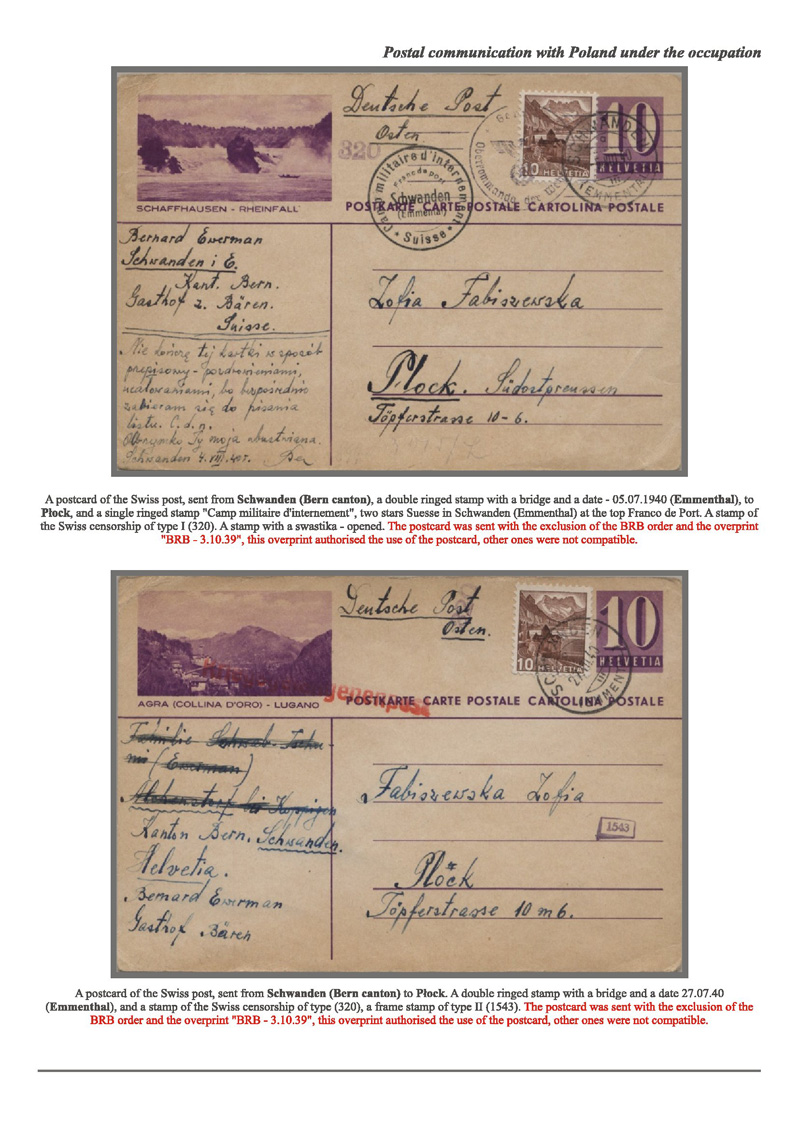 Postal communication with Poland under the occupation
Deutsche Post
Osten.
320
Camp militaire d'internement
Franc de port
Schwanden
(Emmental)
* Suisse *
Oberkommando der
SCHWANDEN
(EMMENTAL)
10
HELVETIA
10
HELVETIA
SCHAFFHAUSEN - RHEINFALL
POSTKARTE CARTE POSTALE CARTOLINA POSTALE
Bernard Ewerman
Schwanden i E.
Kant. Bern.
Gasthof z. Bären.
Suisse.
Nie kończę tej kartki w sposób
przepisowy - pozdrowieniami,
ucałowaniami, bo bezpośrednio
zabieram się do pisania
listu. C.d.n.
Ty moja
Schwanden 4.VII.40r. Ber
Zofia Fabiszewska
Plock. Südostpreussen
Töpferstrasse 10-6.
A postcard of the Swiss post, sent from Schwanden (Bern canton), a double ringed stamp with a bridge and a date - 05.07.1940 (Emmenthal), to
Płock, and a single ringed stamp "Camp militaire d'internement", two stars Suesse in Schwanden (Emmenthal) at the top Franco de Port. A stamp of
the Swiss censorship of type I (320). A stamp with a swastika - opened. The postcard was sent with the exclusion of the BRB order and the overprint
"BRB - 3.10.39", this overprint authorised the use of the postcard, other ones were not compatible.
Deutsche Post
Osten.
10
HELVETIA
10
HELVETIA
AGRA (COLLINA D'ORO) - LUGANO
POSTKARTE CARTE POSTALE CARTOLINA POSTALE
Familie Schwab-Tschu-
mi (Ewerman)
Alchenstorf bei Koppigen
Kanton Bern. Schwanden.
Helvetia.
Bernard Ewerman
Gasthof Bären
Fabiszewska Zofia
1543
Plöck
Töpferstrasse 10 m 6.
A postcard of the Swiss post, sent from Schwanden (Bern canton) to Płock. A double ringed stamp with a bridge and a date 27.07.40
(Emmenthal), and a stamp of the Swiss censorship of type (320), a frame stamp of type II (1543). The postcard was sent with the exclusion of the
BRB order and the overprint "BRB - 3.10.39", this overprint authorised the use of the postcard, other ones were not compatible.